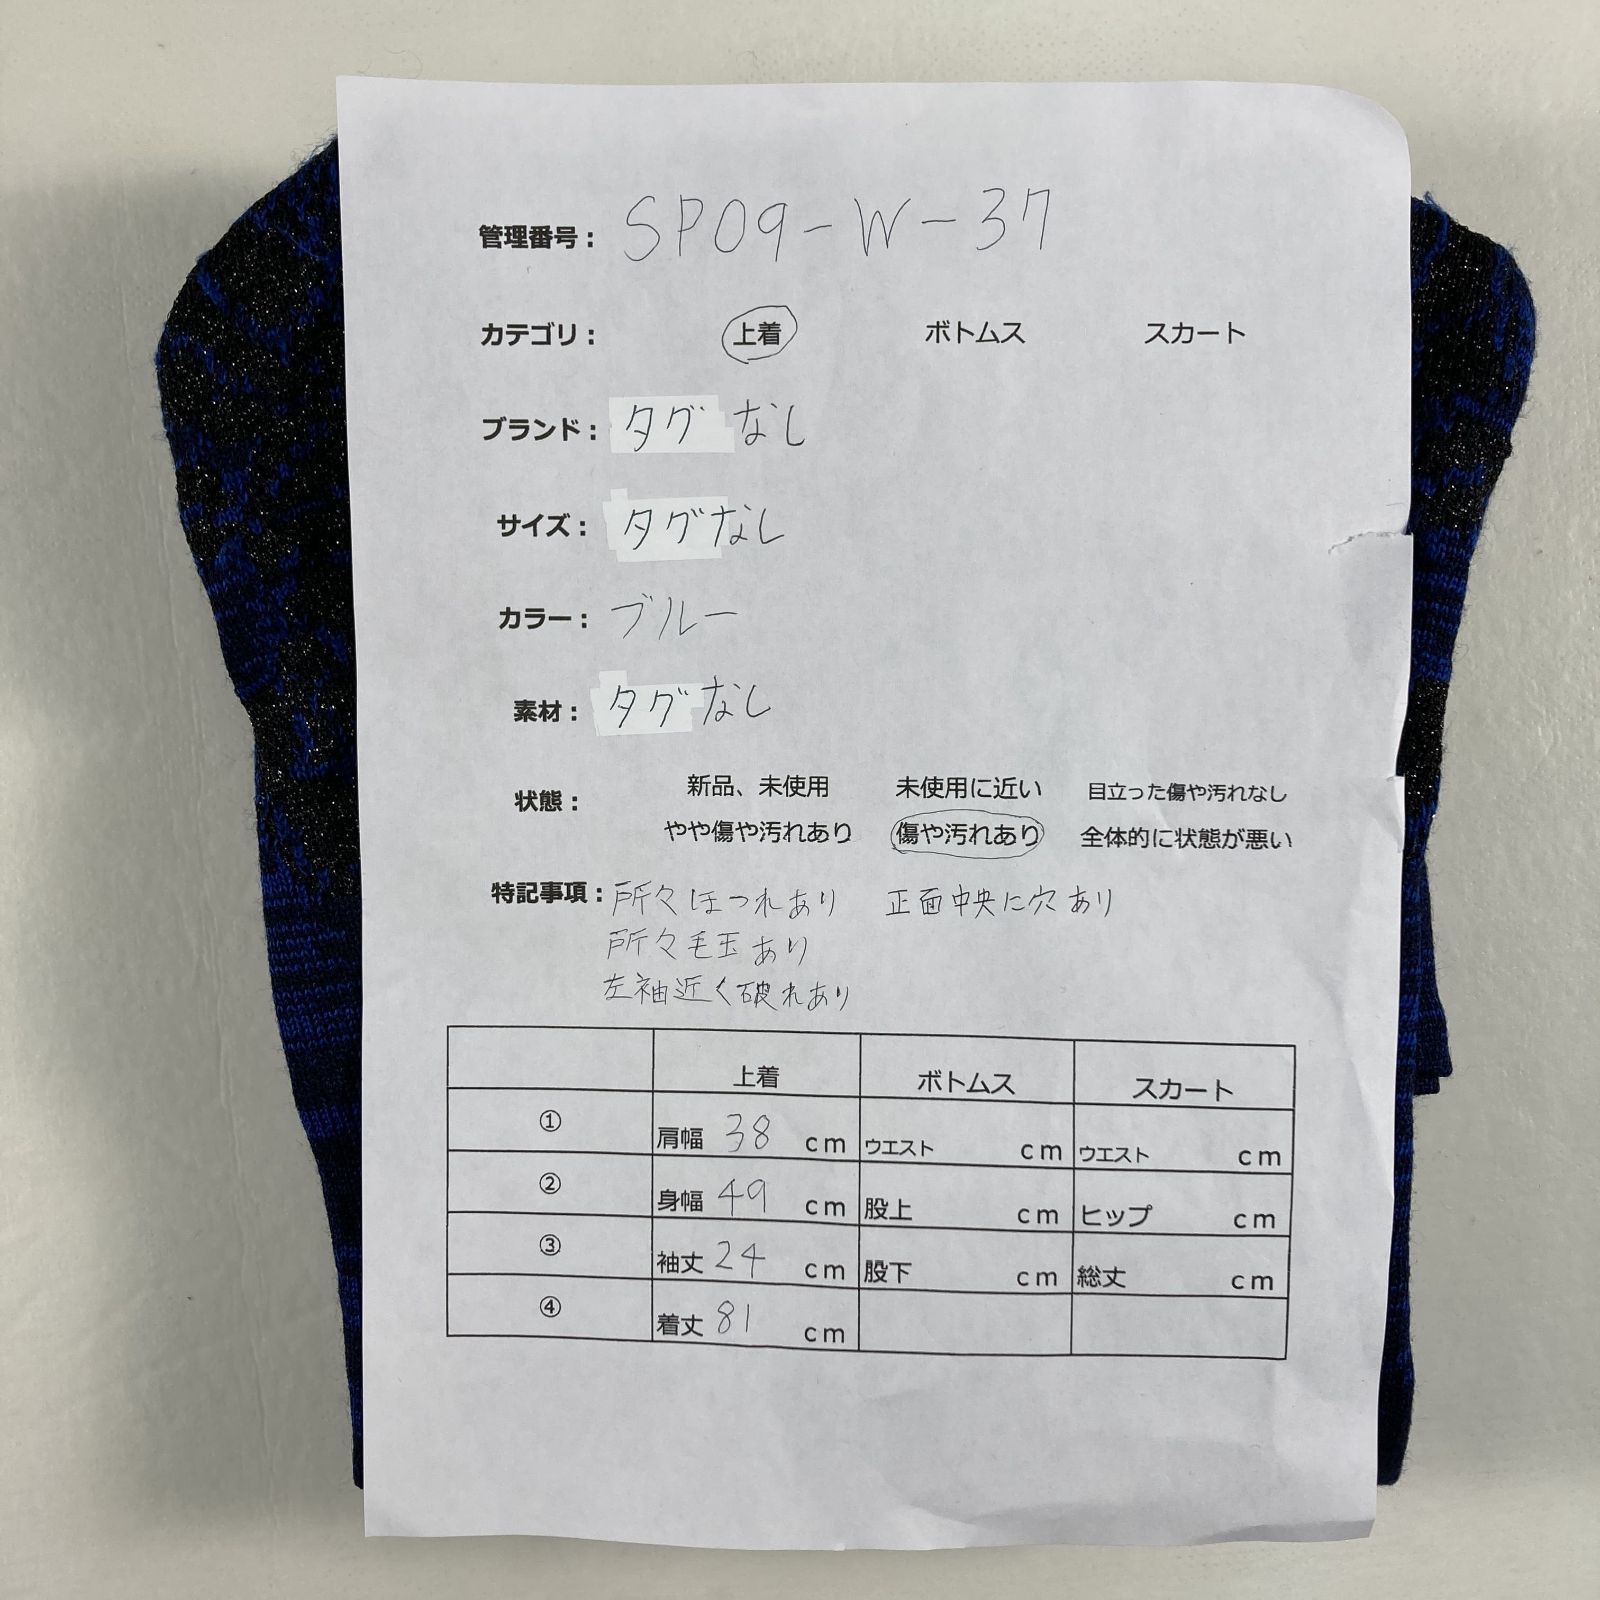 管理番号： SP09-W-37
カテゴリ： 上着 ボトムス スカート
ブランド： タグなし
サイズ： タグなし
カラー： ブルー
素材： タグなし
状態： 新品、未使用 未使用に近い 目立った傷や汚れなし
やや傷や汚れあり 傷や汚れあり 全体的に状態が悪い
特記事項： 所々ほつれあり 正面中央に穴あり
所々毛玉あり
左袖近く破れあり
上着 ボトムス スカート
① 肩幅 38 cm ウエスト cm ウエスト cm
② 身幅 49 cm 股上 cm ヒップ cm
③ 袖丈 24 cm 股下 cm 総丈 cm
④ 着丈 81 cm